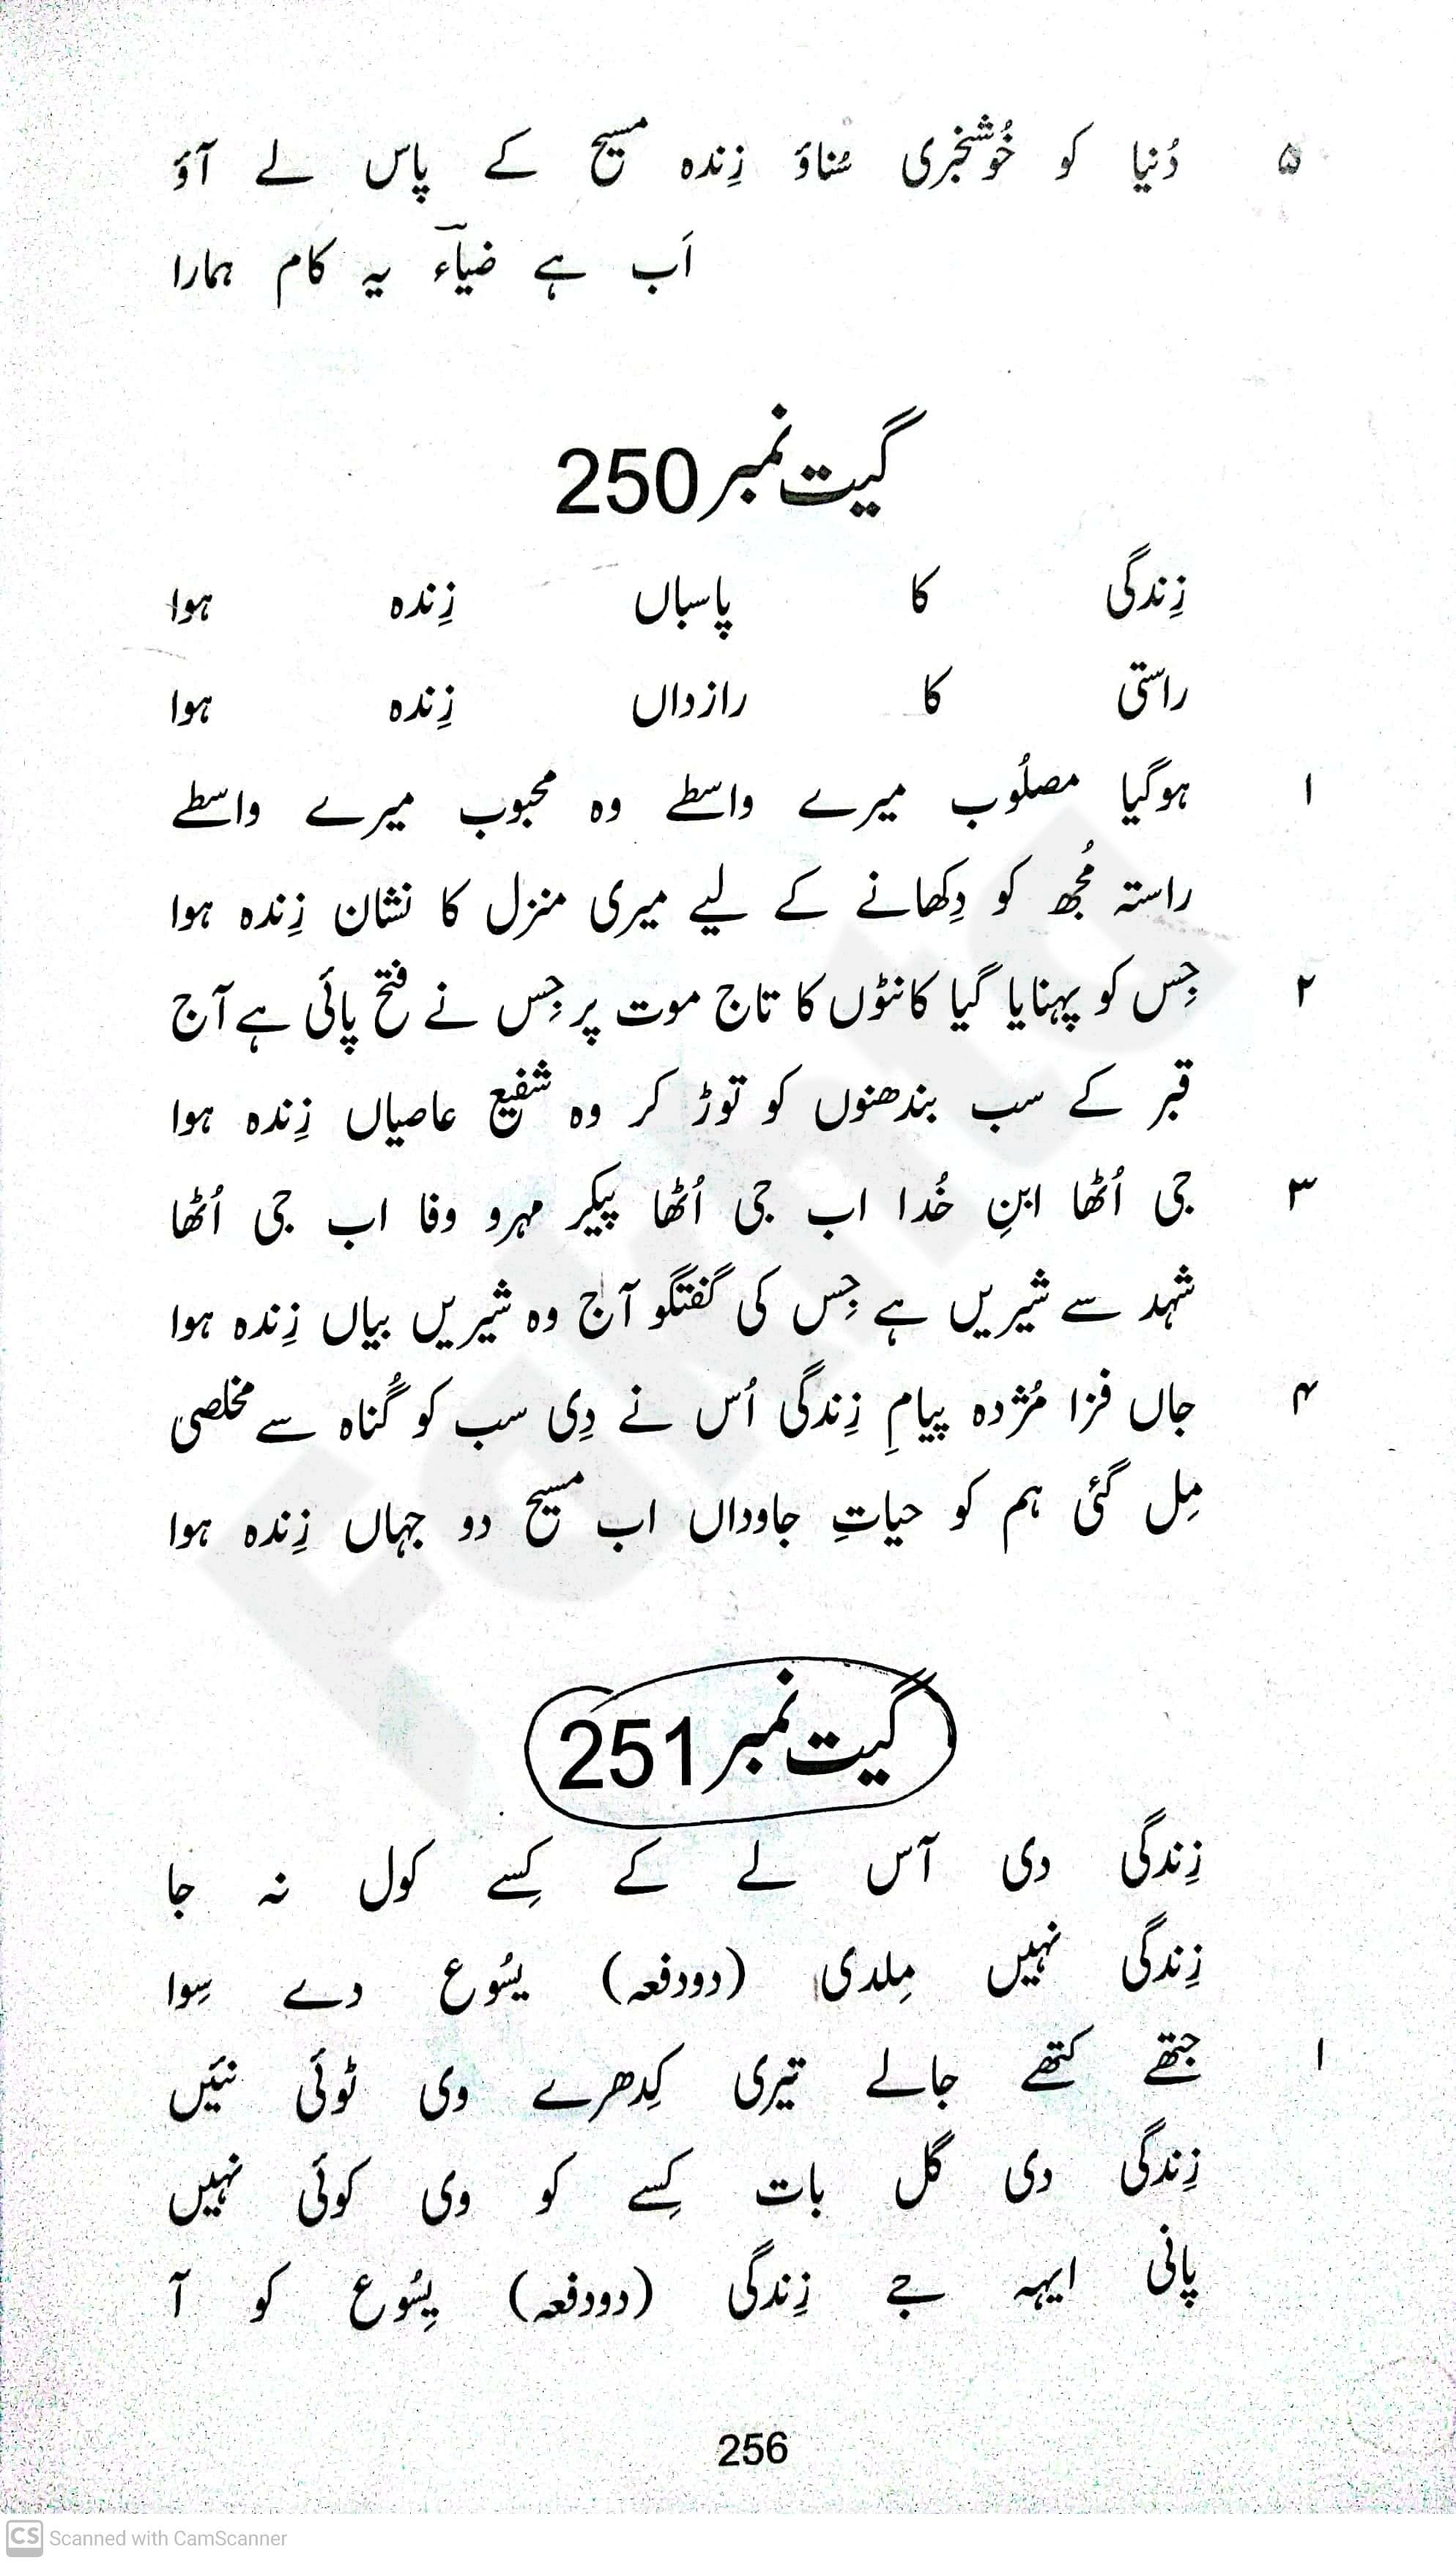 ۵ دُنیا کو خُوشخبری سُناؤ زِندہ مسیح کے پاس لے آؤ
اَب ہے ضیاؔء یہ کام ہمارا
گیت نمبر 250
زِندگی کا پاسباں زِندہ ہوا
راستی کا رازداں زِندہ ہوا
۱ ہوگیا مصلُوب میرے واسطے وہ محبوب میرے واسطے
راستہ مُجھ کو دِکھانے کے لیے میری منزل کا نشان زِندہ ہوا
۲ جِس کو پہنایا گیا کانٹوں کا تاج موت پر جِس نے فتح پائی ہے آج
قبر کے سب بندھنوں کو توڑ کر وہ شفیع عاصیاں زِندہ ہوا
۳ جی اُٹھا ابنِ خُدا اب جی اُٹھا پیکر مہرو وفا اب جی اُٹھا
شہد سے شیریں ہے جِس کی گفتگو آج وہ شیریں بیاں زِندہ ہوا
۴ جاں فزا مُژدہ پیامِ زِندگی اُس نے دِی سب کو گُناہ سے مخلصی
مِل گئی ہم کو حیاتِ جاوداں اب مسیح دو جہاں زِندہ ہوا
گیت نمبر 251
زِندگی دی آس لے کے کِسے کول نہ جا
زِندگی نہیں مِلدی (دودفعہ) یسُوع دے سِوا
۱ جتھے کتھے جالے تیری کِدھرے وی ٹوئی نئیں
زِندگی دی گل بات کِسے کو وی کوئی نہیں
پانی ایہہ جے زِندگی (دودفعہ) یِسُوع کو آ
256
CS Scanned with CamScanner